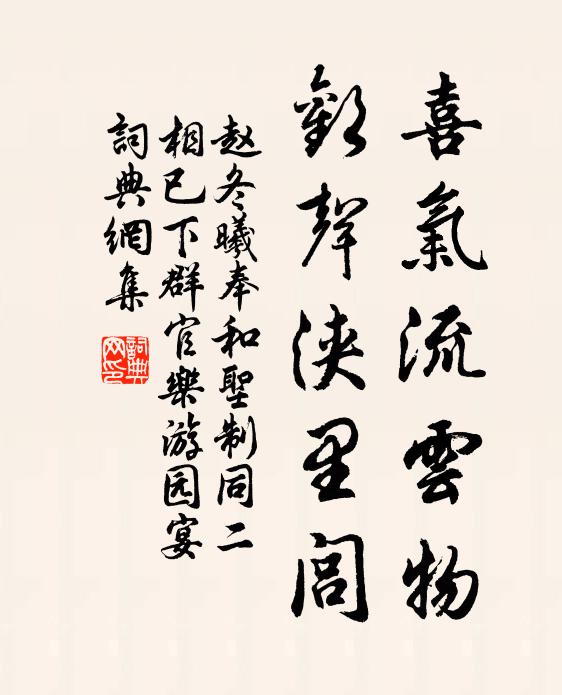 喜氣流雲物
歡聲浹里閭
赵冬曦奉和聖制同二
相已下群官樂游园宴
詞典網集
詞典
网印